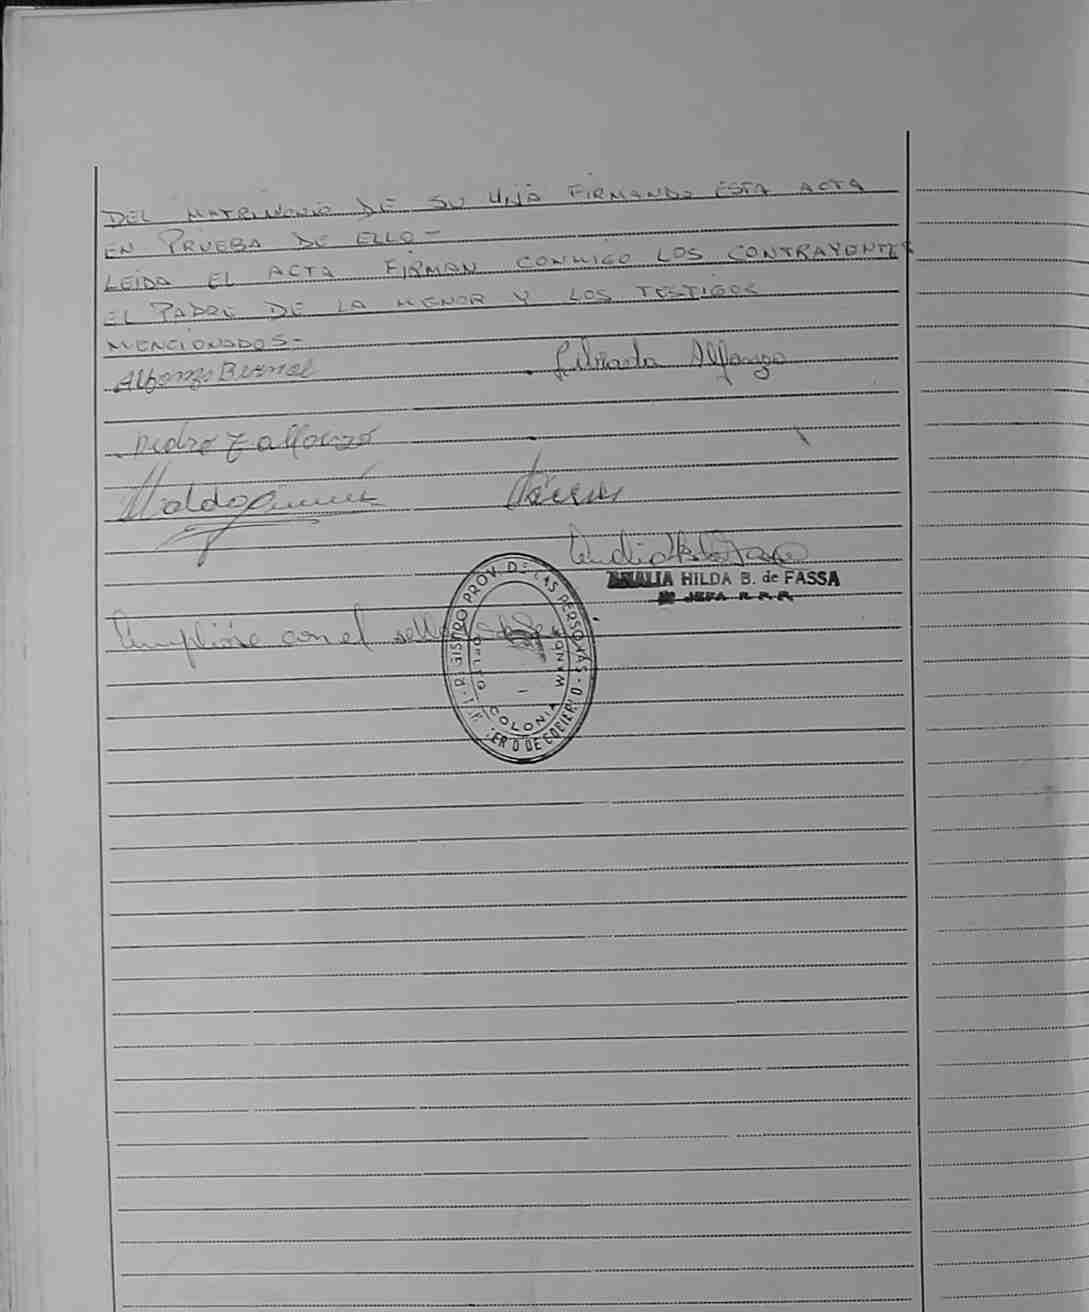 DEL MATRIMONIO DE SU HIJA FIRMANDO ESTA ACTA
EN PRUEBA DE ELLO-
LEIDA EL ACTA FIRMAN CONMIGO LOS CONTRAYENTES
EL PADRE DE LA MENOR Y LOS TESTIGOS
MENCIONADOS-
Alfonzo Bernal
Librada Alfonzo
Pedro Z alfonzo
AMALIA HILDA B. de FASSA
JEFA R. P. P.
Cumpliose con el sellado
REGISTRO PROV. DE LAS PERSONAS
COLONIA WANDA